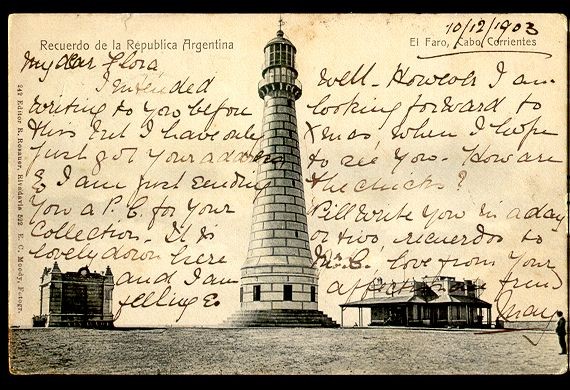 10/12/1903
Recuerdo de la República Argentina
El Faro, Cabo Corrientes
My dear Flora
I intended
writing to you before
this but I have only
just got your address
& I am just sending
you a P. C. for your
collection. It is
lovely down here
and I am
feeling
well. However I am
looking forward to
Xmas, when I hope
to see you. How are
the chicks?
I'll write you in a day
or two, recuerdos to
love from your
affectionate friend
May
247 Editor R. Rosauer, Rivadavia 522 E. C. Moody, Fotogr.